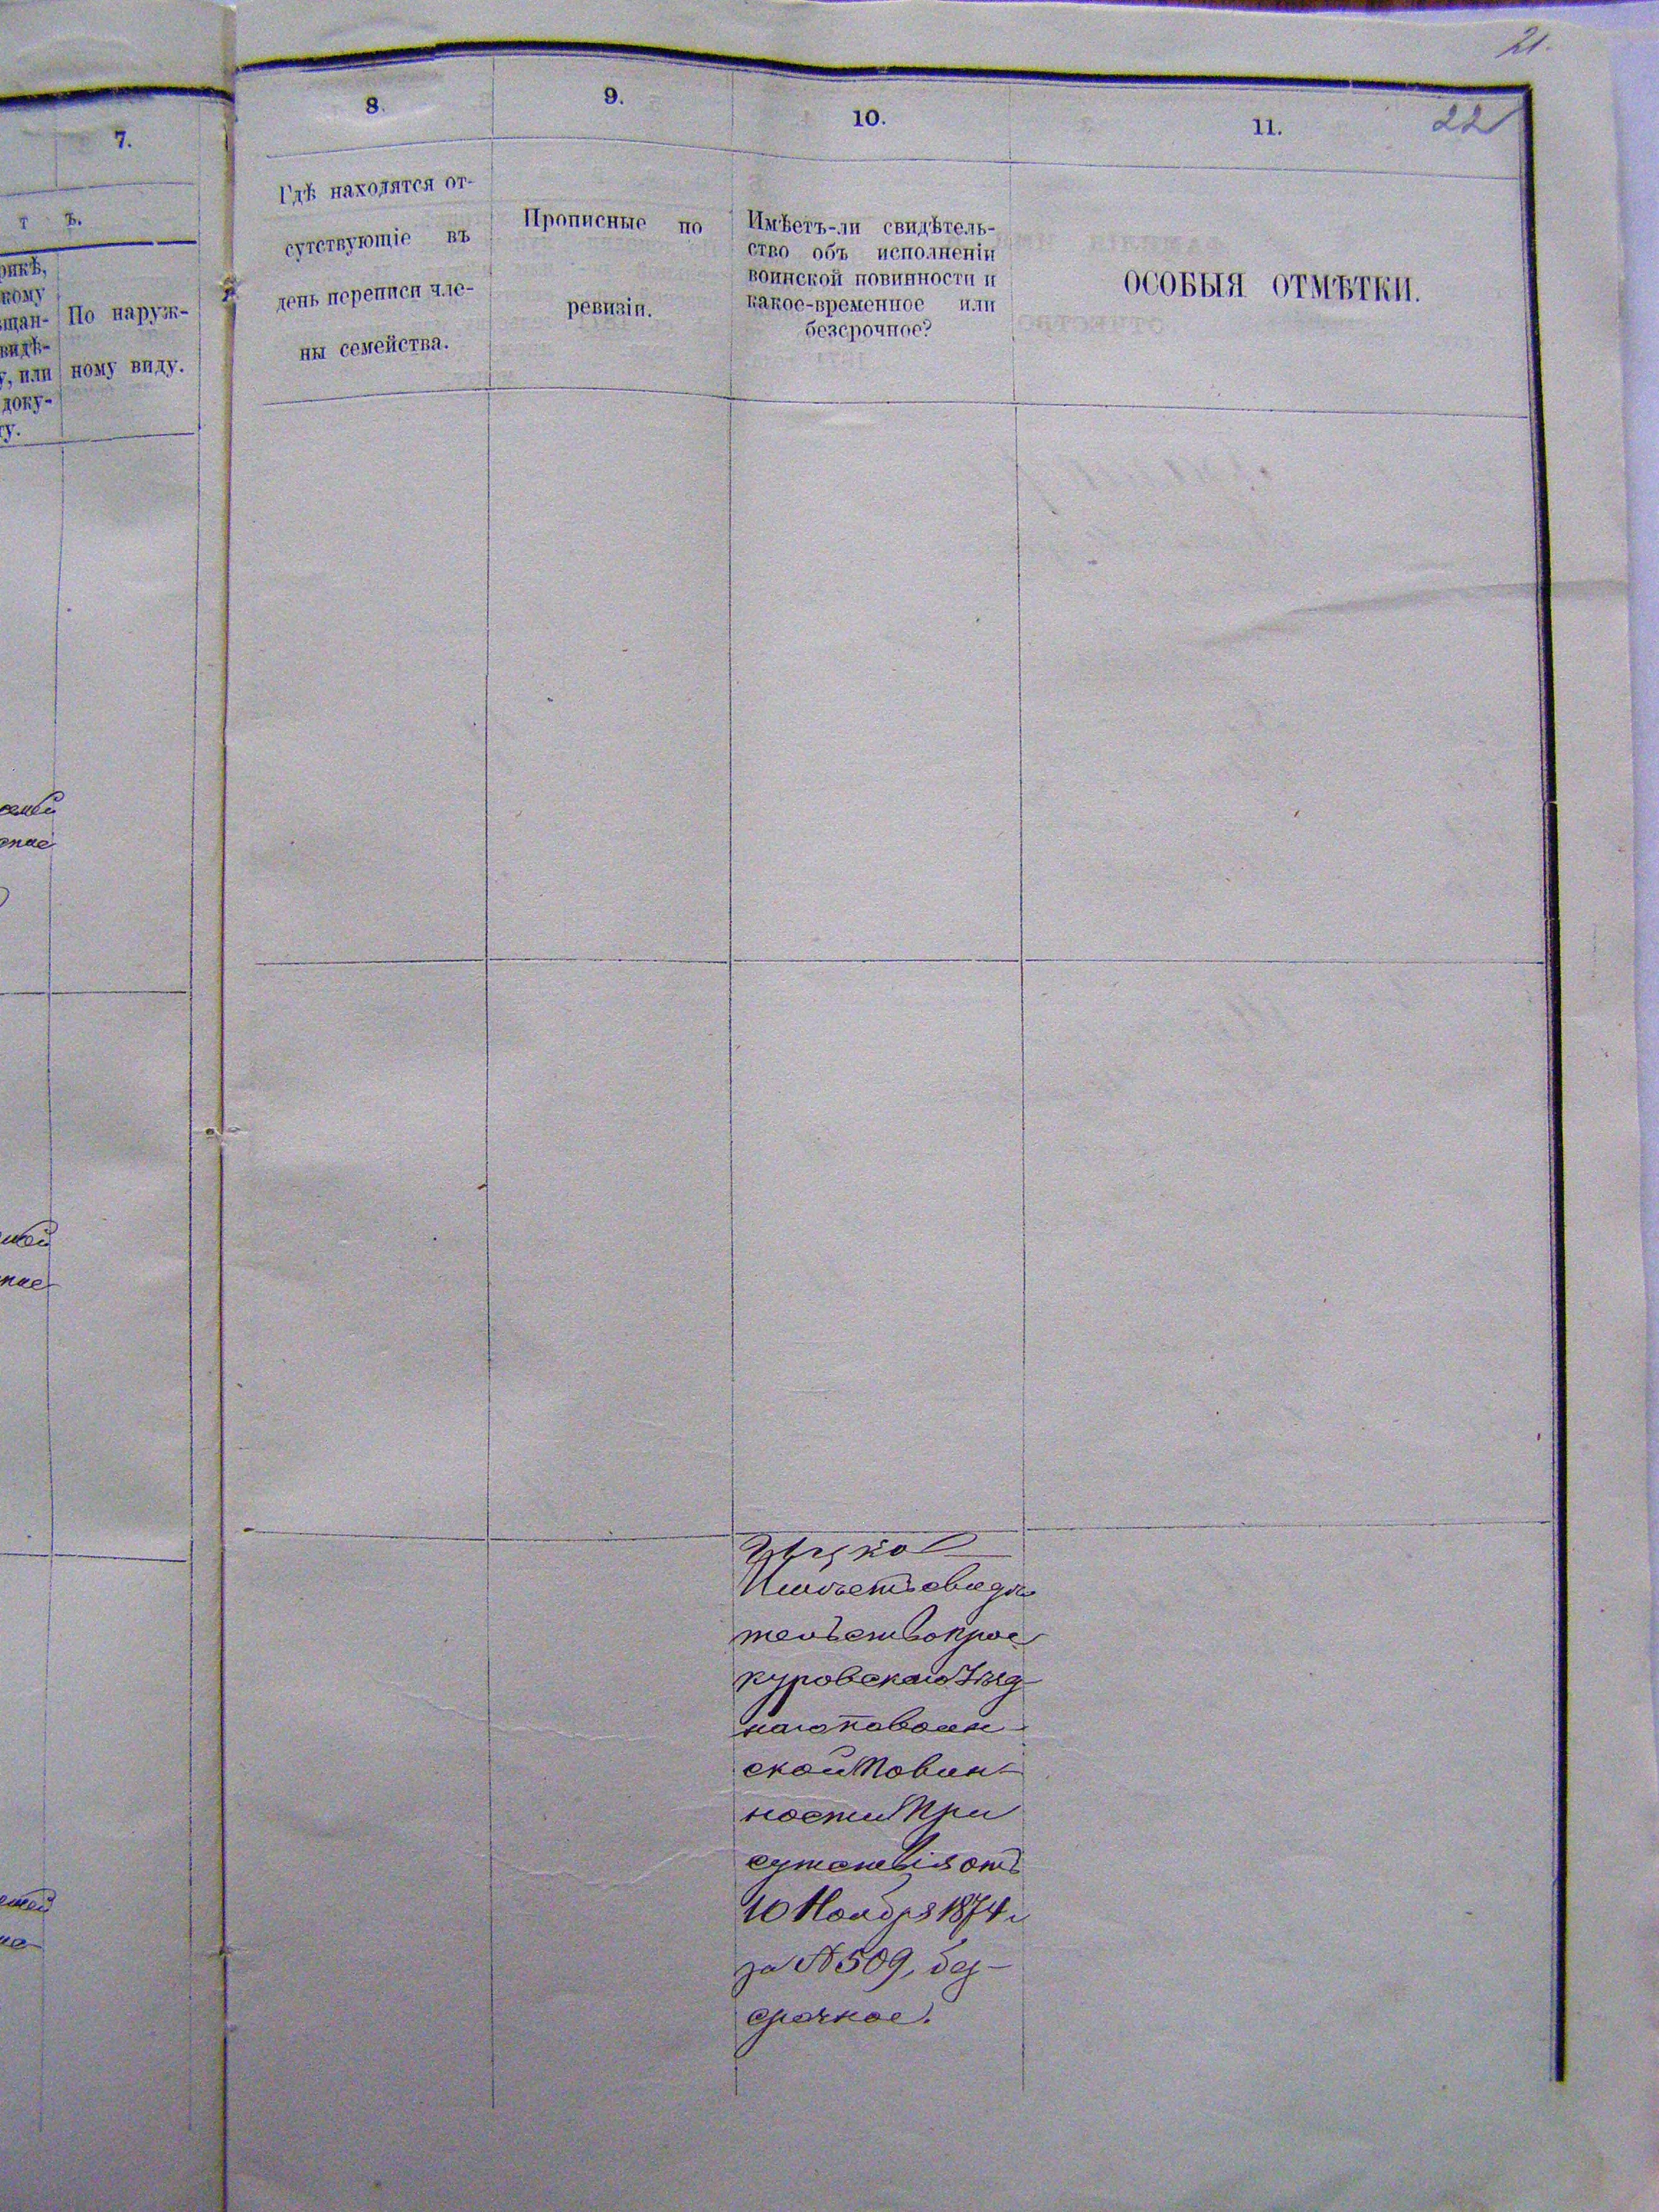 21.
22
7.
т ъ.
рикѣ,
кому
щан-
видѣ-
у, или
доку-
ту.
По наруж-
ному виду.
8.
Гдѣ находятся от-
сутствующіе въ
день переписи чле-
ны семейства.
9.
Прописные по
ревизіи.
10.
Имѣетъ-ли свидѣтель-
ство объ исполненіи
воинской повинности и
какое-временное или
безсрочное?
11.
ОСОБЫЯ ОТМѢТКИ.
Имѣетъ свидѣ
тельство Прос
куровскаго Уѣзд
наго по воин
ской Повин
ности При
сутствія отъ
10 Ноября 1874 г
за № 509, без-
срочное.